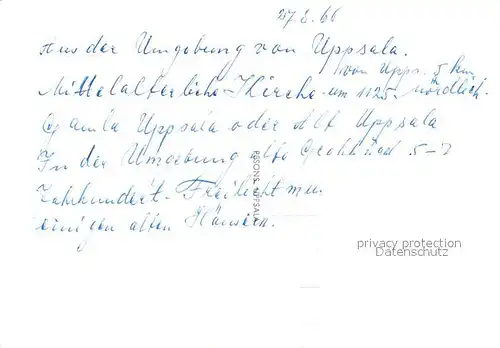 27.8.66
Aus der Umgebung von Uppsala.
von Upps. 5 km
Mittelalterliche Kirche um 1125. nördlich.
Gamla Uppsala oder Alt Uppsala
In der Umgebung alte 5-
Jahrhundert. Freilicht
einigen alten Häusern.
UPPSALA
privacy protection
Datenschutz